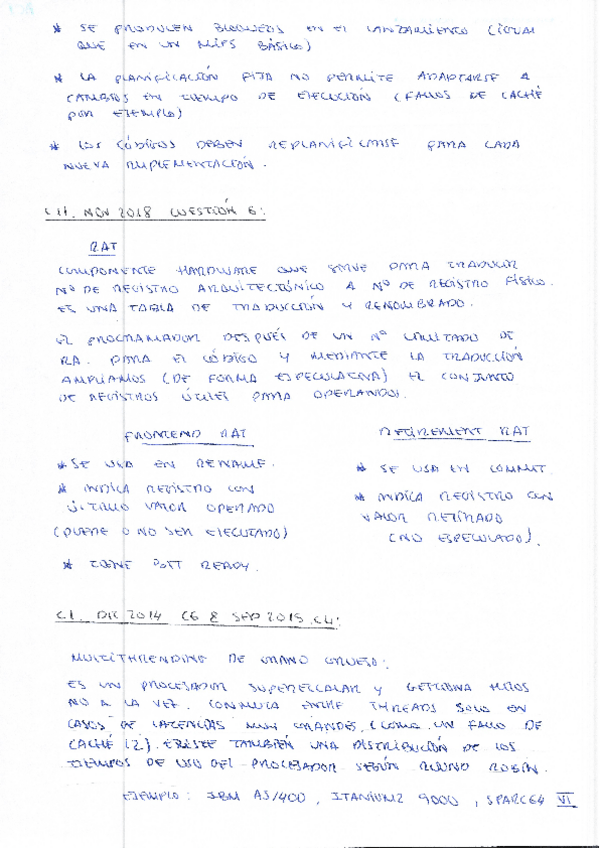 * SE PRODUCEN BLOQUEOS EN EL LANZAMIENTO (IGUAL
QUE EN UN MIPS BÁSICO)
* LA PLANIFICACIÓN FIJA NO PERMITE ADAPTARSE A
CAMBIOS EN TIEMPO DE EJECUCIÓN (FALLOS DE CACHÉ
POR EJEMPLO)
* LOS CÓDIGOS DEBEN REPLANIFICARSE PARA CADA
NUEVA IMPLEMENTACIÓN.
NOV 2018 CUESTIÓN 6:
RAT
COMPONENTE HARDWARE QUE SIRVE PARA TRADUCIR
Nº DE REGISTRO ARQUITECTÓNICO A Nº DE REGISTRO FÍSICO.
ES UNA TABLA DE TRADUCCIÓN Y RENOMBRADO.
EL PROGRAMADOR DESPUÉS DE UN Nº LIMITADO DE
RA. PARA EL CÓDIGO Y MEDIANTE LA TRADUCCIÓN
AMPLIAMOS (DE FORMA ESPECULATIVA) EL CONJUNTO
DE REGISTROS ÚTILES PARA OPERANDOS.
FRONTEND RAT
* SE USA EN RENAME.
* INDICA REGISTRO CON
ÚLTIMO VALOR OPERADO
(PUEDE O NO SER EJECUTADO)
* TIENE BIT READY.
RETIREMENT RAT
* SE USA EN COMMIT.
* INDICA REGISTRO CON
VALOR RETIRADO
(NO ESPECULADO).
C1. DIC 2014 C6 & SEP 2015 C4:
MULTITHREADING DE GRANO GRUESO:
ES UN PROCESADOR SUPERESCALAR Y GESTIONA HILOS
NO A LA VEZ. CONMUTA ENTRE THREADS SOLO EN
CASOS DE LATENCIAS MUY GRANDES. (COMO UN FALLO DE
CACHÉ L2). EXISTE TAMBIÉN UNA DISTRIBUCIÓN DE LOS
TIEMPOS DE USO DEL PROCESADOR SEGÚN ROUND ROBIN.
EJEMPLO: IBM AS/400, ITANIUM2 9000, SPARC64 VI